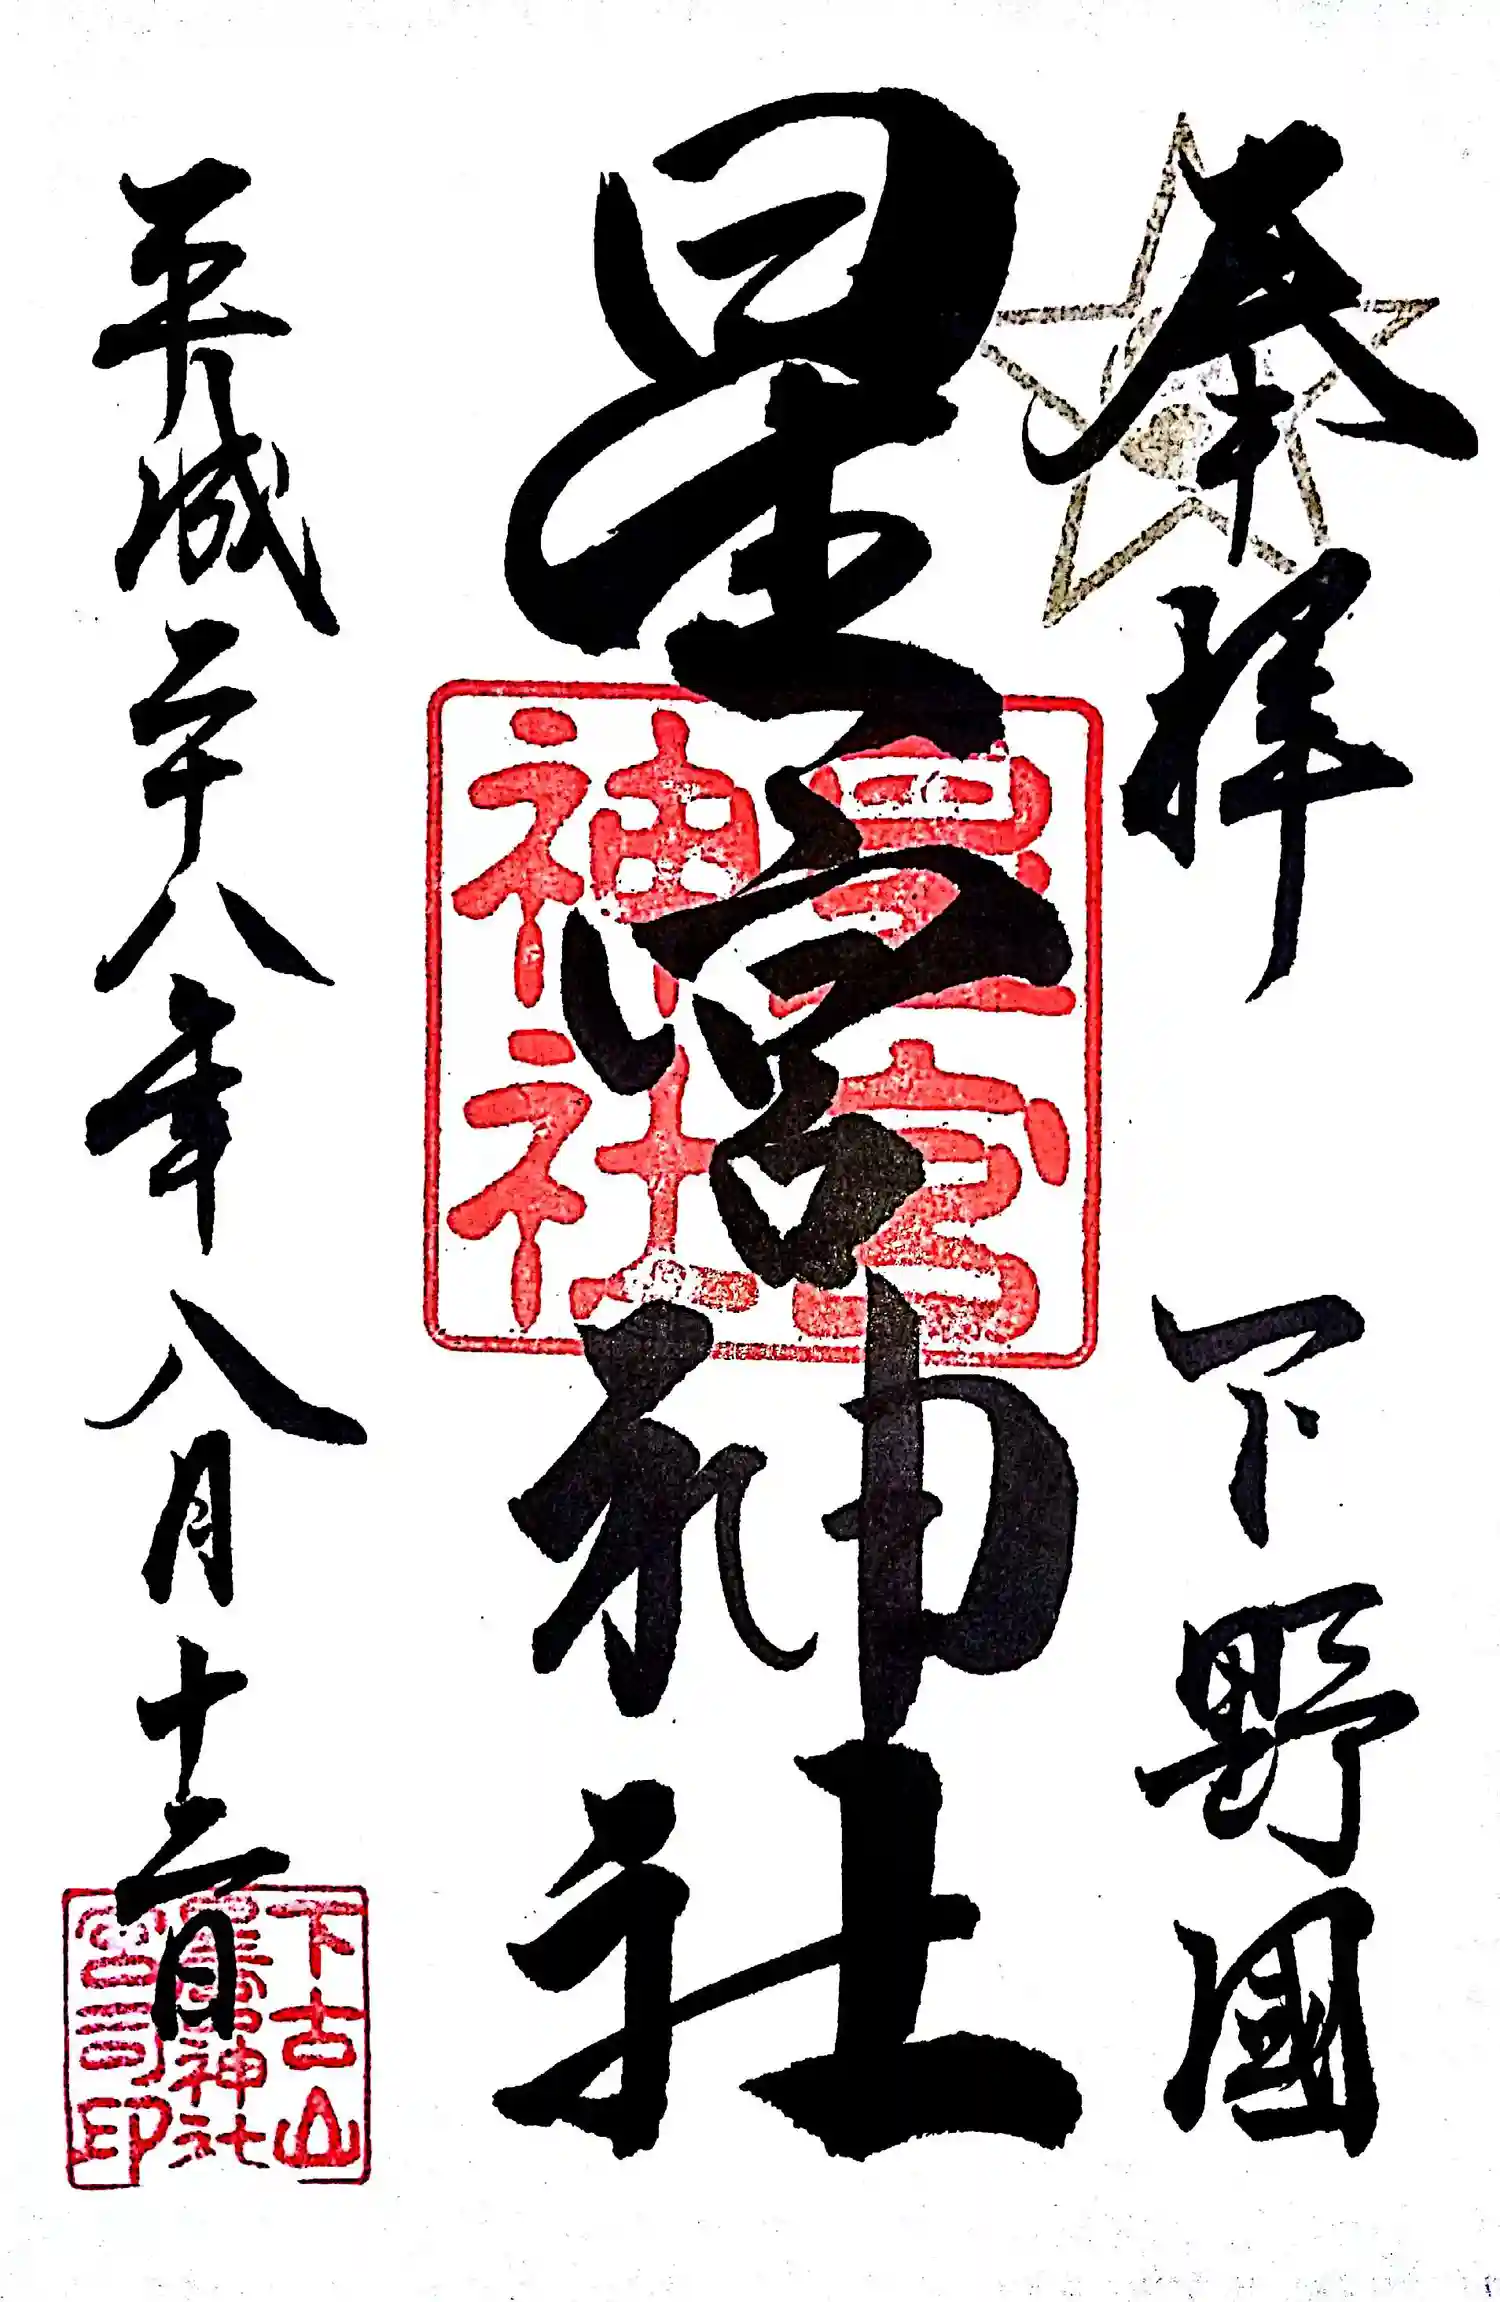 奉拝　下野國
星宮神社
星宮
神社
平成二十八年八月十二日
下古山
星宮神社
宮司印